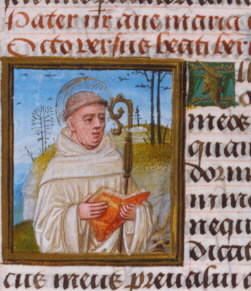 Pater nr̄ aue maria
Octo versus beati ber
meos
quan
dorm
nimo
nequ
dicat
cus meus preualui